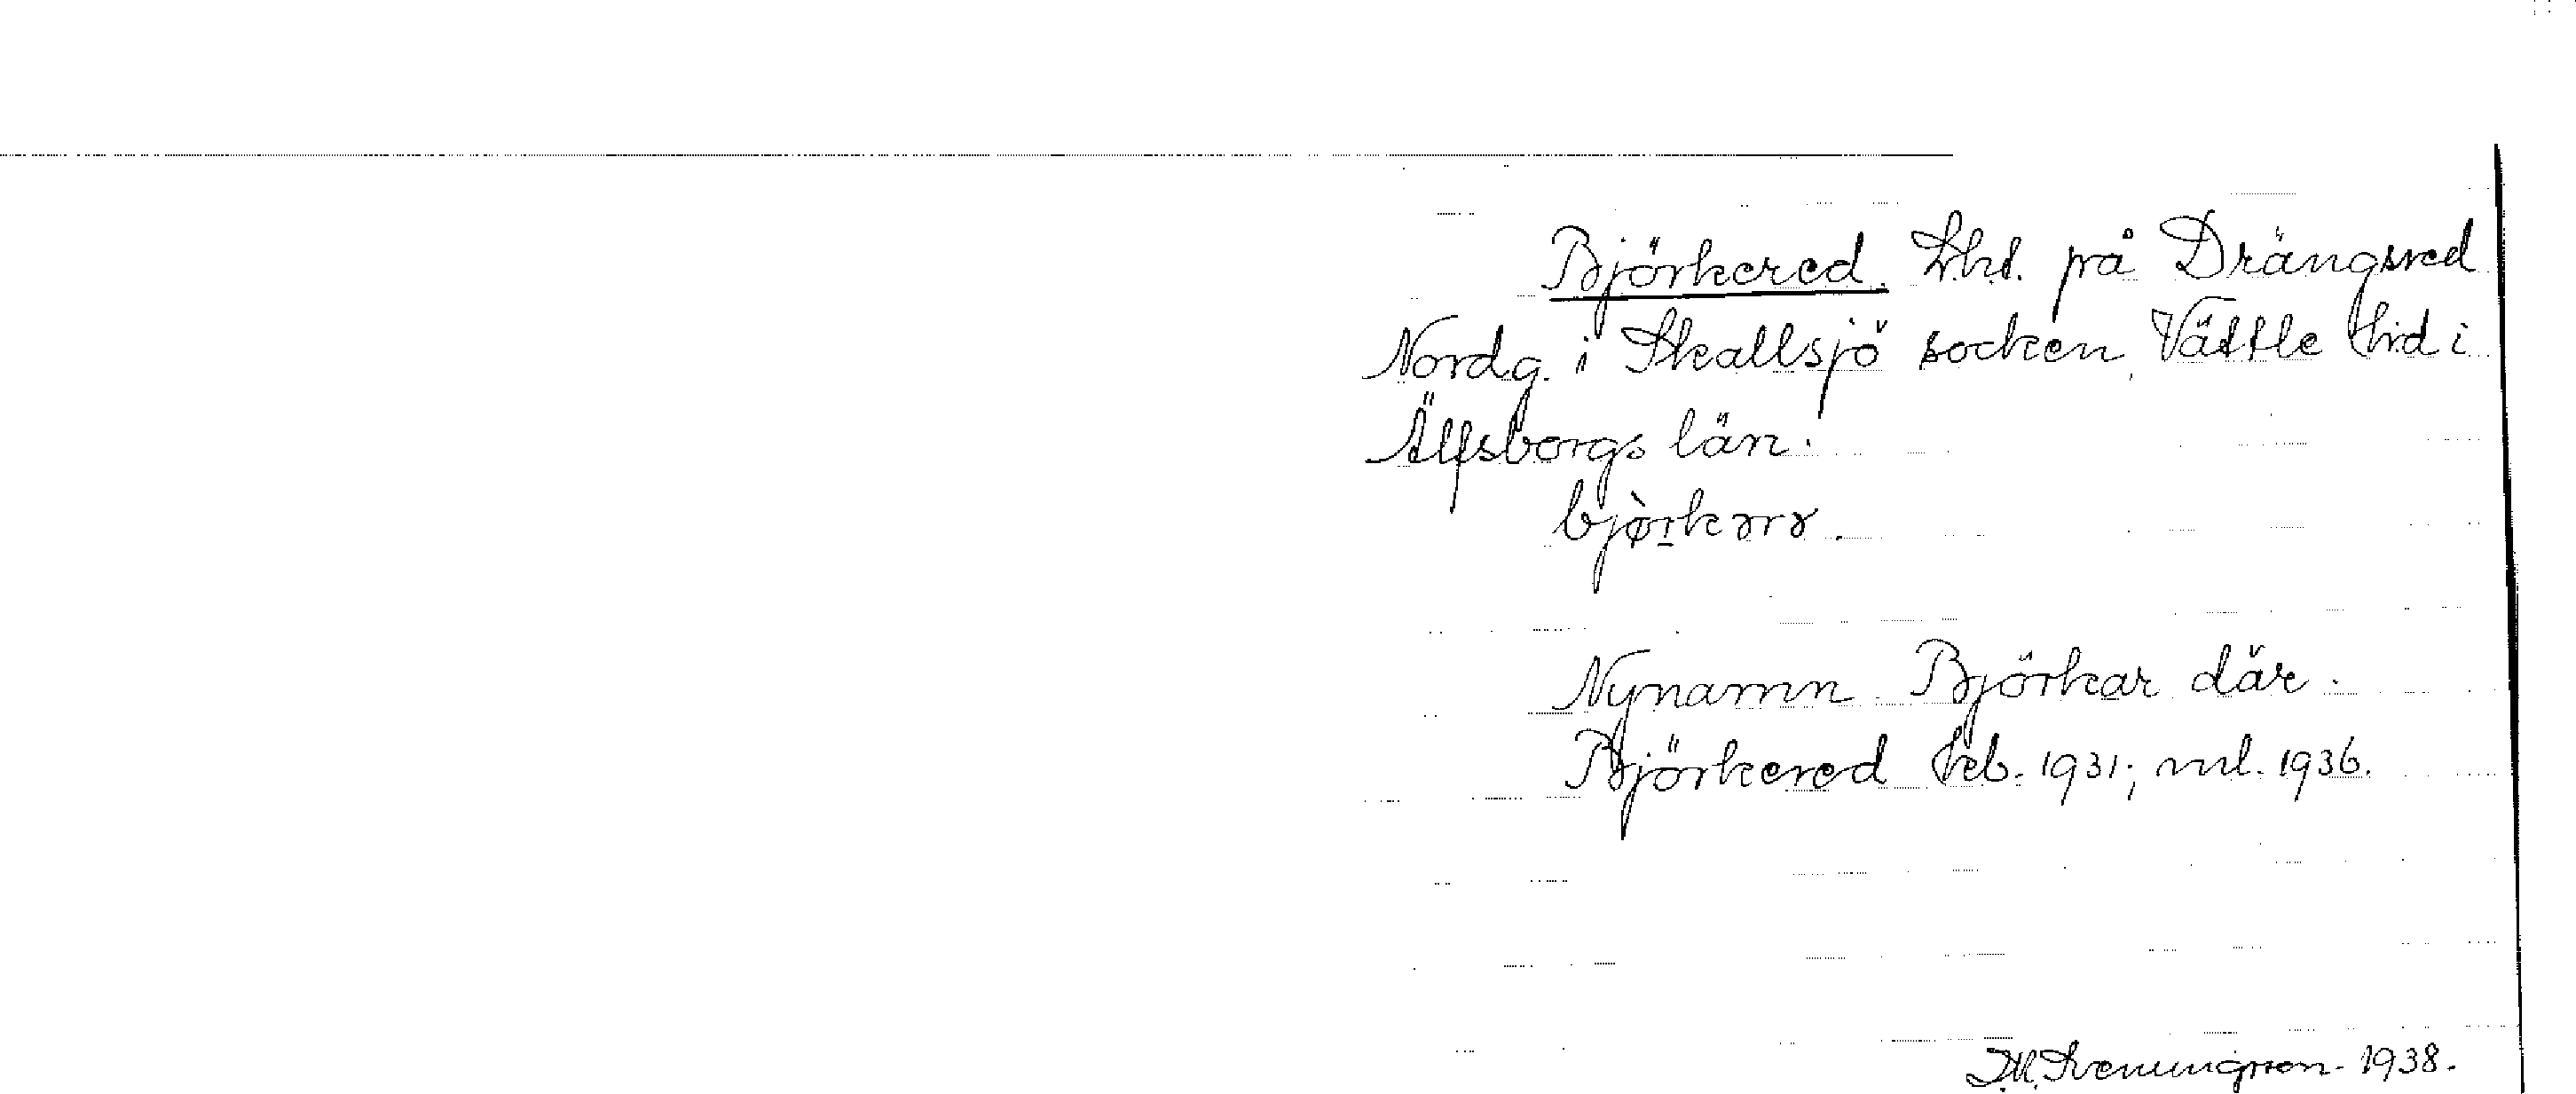 Björkered. Lht. på Drängsred
Nordg. i Skallsjö socken, Vättle hrd i
Älfsborgs län.
bjø̀rkərə.
Nynamn. Björkar där.
Björkered keb. 1931; ml. 1936.
D.M. Svenningsson. 1938.